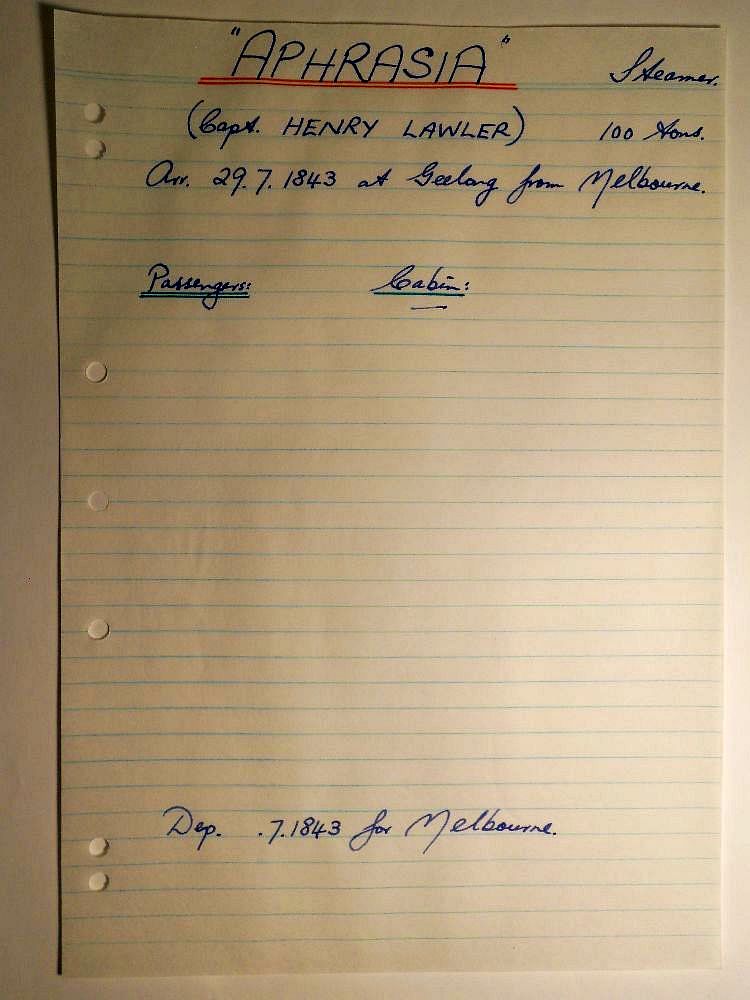 "APHRASIA" Steamer.
(Capt. HENRY LAWLER) 100 tons.
Arr. 29.7.1843 at Geelong from Melbourne.
Passengers: Cabin:
—
Dep. .7.1843 for Melbourne.